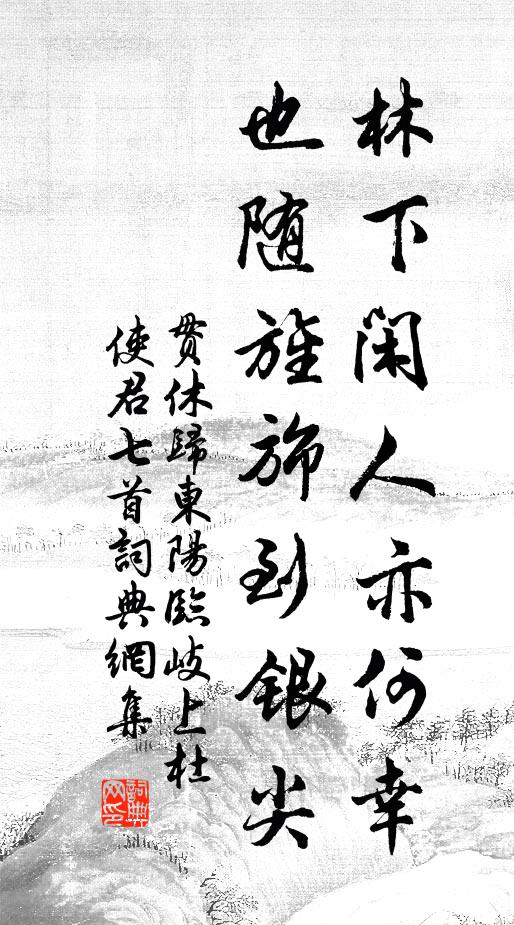 林下閑人亦何幸
也随旌旆到銀尖
貫休歸東陽臨岐上杜
使君七首詞典網集
詞典网印